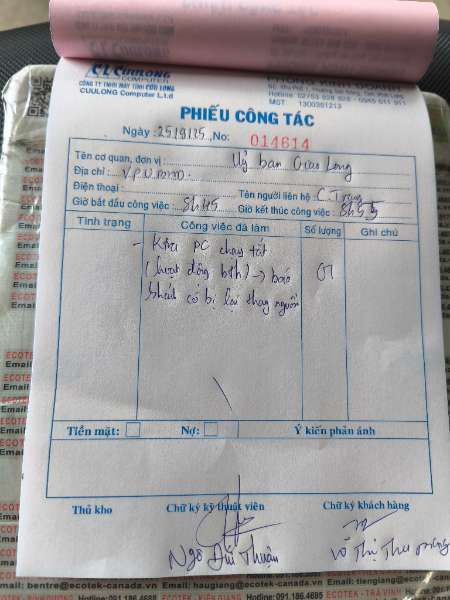 CUULONG
COMPUTER
CÔNG TY TNHH MÁY TÍNH CỬU LONG
CUULONG Computer L.t.d
PHÒNG KINH DOANH
MST : 1300351213
PHIẾU CÔNG TÁC
Ngày : 25/9/25, No: 014614
Tên cơ quan, đơn vị : Uỷ ban Giao Long
Địa chỉ : V.P.U.BND
Điện thoại : Tên người liên hệ : C. Trang
Giờ bắt đầu công việc : 8h45 Giờ kết thúc công việc : 8h55
Tình trạng Công việc đã làm Số lượng Ghi chú
- Ktra PC chạy tốt 01
(hoạt động bth) → báo
khách có bị lại thay nguồn
Tiền mặt: Nợ: Ý kiến phản ánh
Thủ kho Chữ ký kỹ thuật viên Chữ ký khách hàng
Ngô Đức Thuận Võ Thị Thu
Email: bentre@ecotek-canada.vn Email: haugiang@ecotek-canada.vn Email: tiengiang@ecotek
Hotline: 091.186.4685